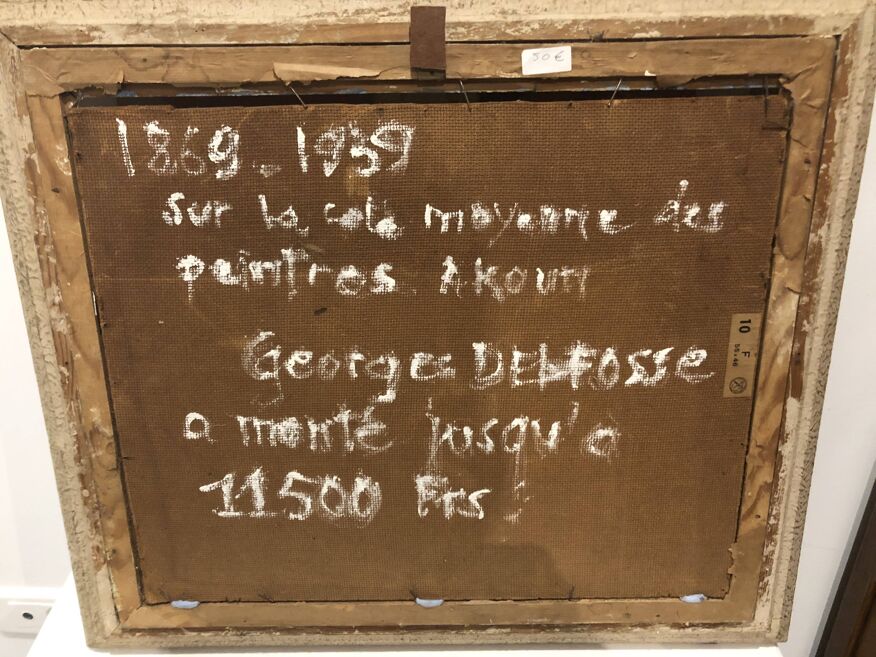 50 €
1869 - 1939
sur la cote moyenne des
peintres Akoun
Georges DELFOSSE
a monté jusqu'a
11500 Frs !
10 F
55 x 46